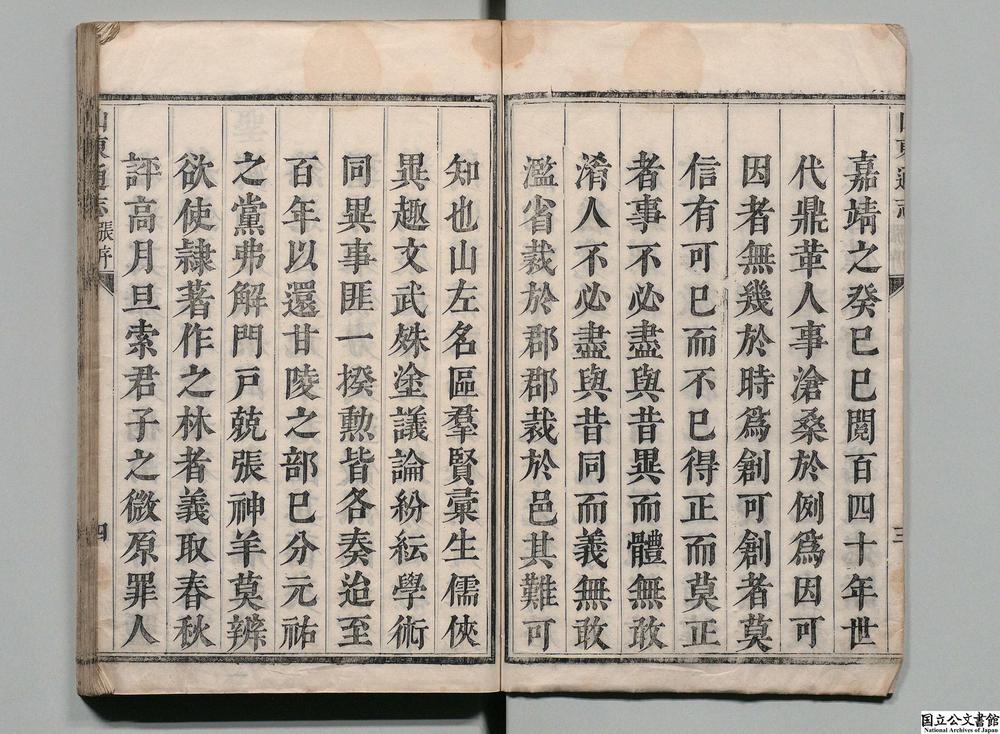 嘉靖之癸巳已閱百四十年世
代鼎革人事滄桑於例爲因可
因者無幾於時爲創可創者莫
信有可已而不已得正而莫正
者事不必盡與昔異而體無敢
淆人不必盡與昔同而義無敢
濫省裁於郡郡裁於邑其難可
三
知也山左名區羣賢彙生儒俠
異趣文武殊塗議論紛紜學術
同異事匪一揆勲皆各奏迨至
百年以還甘陵之部已分元祐
之黨弗解門戸兢張神羊莫辨
欲使隷著作之林者義取春秋
評高月旦索君子之微原罪人
山東通志
張序
四
国立公文書館
National Archives of Japan